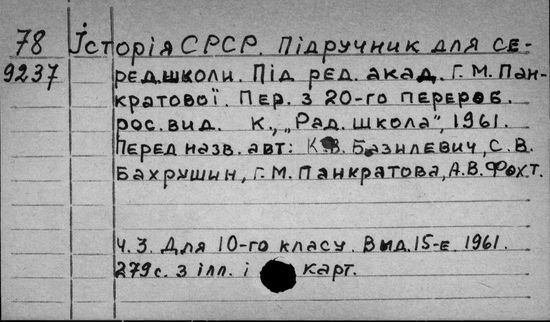 78 Історія СРСР. Підручник для се-
9237 ред.школи. Під ред. акад. Г.М. Пан-
кратової. Пер. з 20-го перероб.
рос.вид. К., „Рад. школа", 1961.
Перед назв. авт: К.В. Базилевич, С.В.
Бахрушин, Г.М. Панкратова, А.В. Фохт.
Ч.3. Для 10-го класу. Вид. 15-е 1961.
279с. з ілл. і карт.